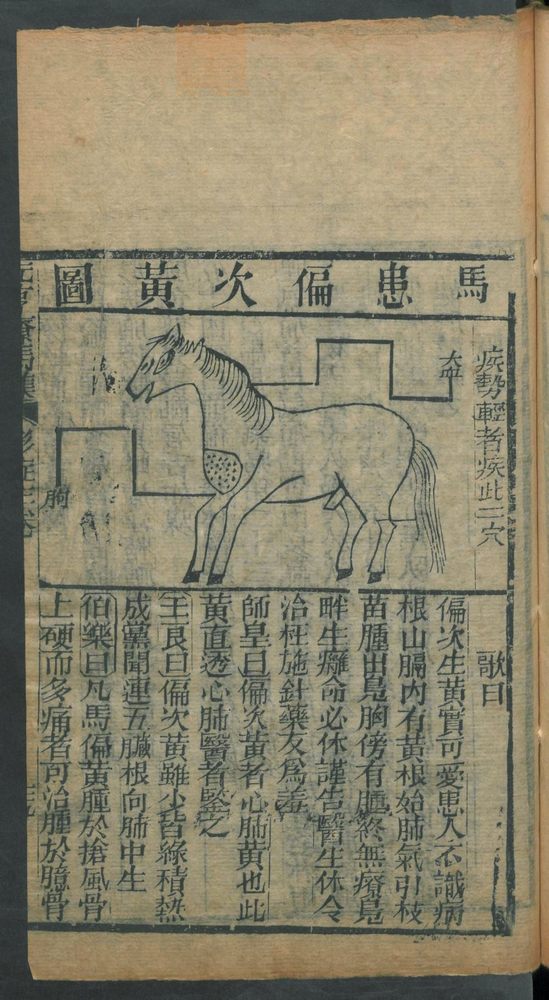 馬患偏次黃圖
疾勢輕者疾此二穴
胸
歌曰
偏次生黃實可愛患人不識病
根山膈內有黃根始肺氣引枝
苗腫出鳧胸傍有腫終無療鳧
畔生癰命必休謹告醫生休令
治枉施針藥反為羞
師皇曰偏次黃者心肺黃也此
黃直透心肺醫者鑒之
王良曰偏次黃雖少皆緣積熱
成黨聞連五臟根向肺中生
伯樂曰凡馬偏黃腫於搶風骨
上硬而多痛者可治腫於臆骨